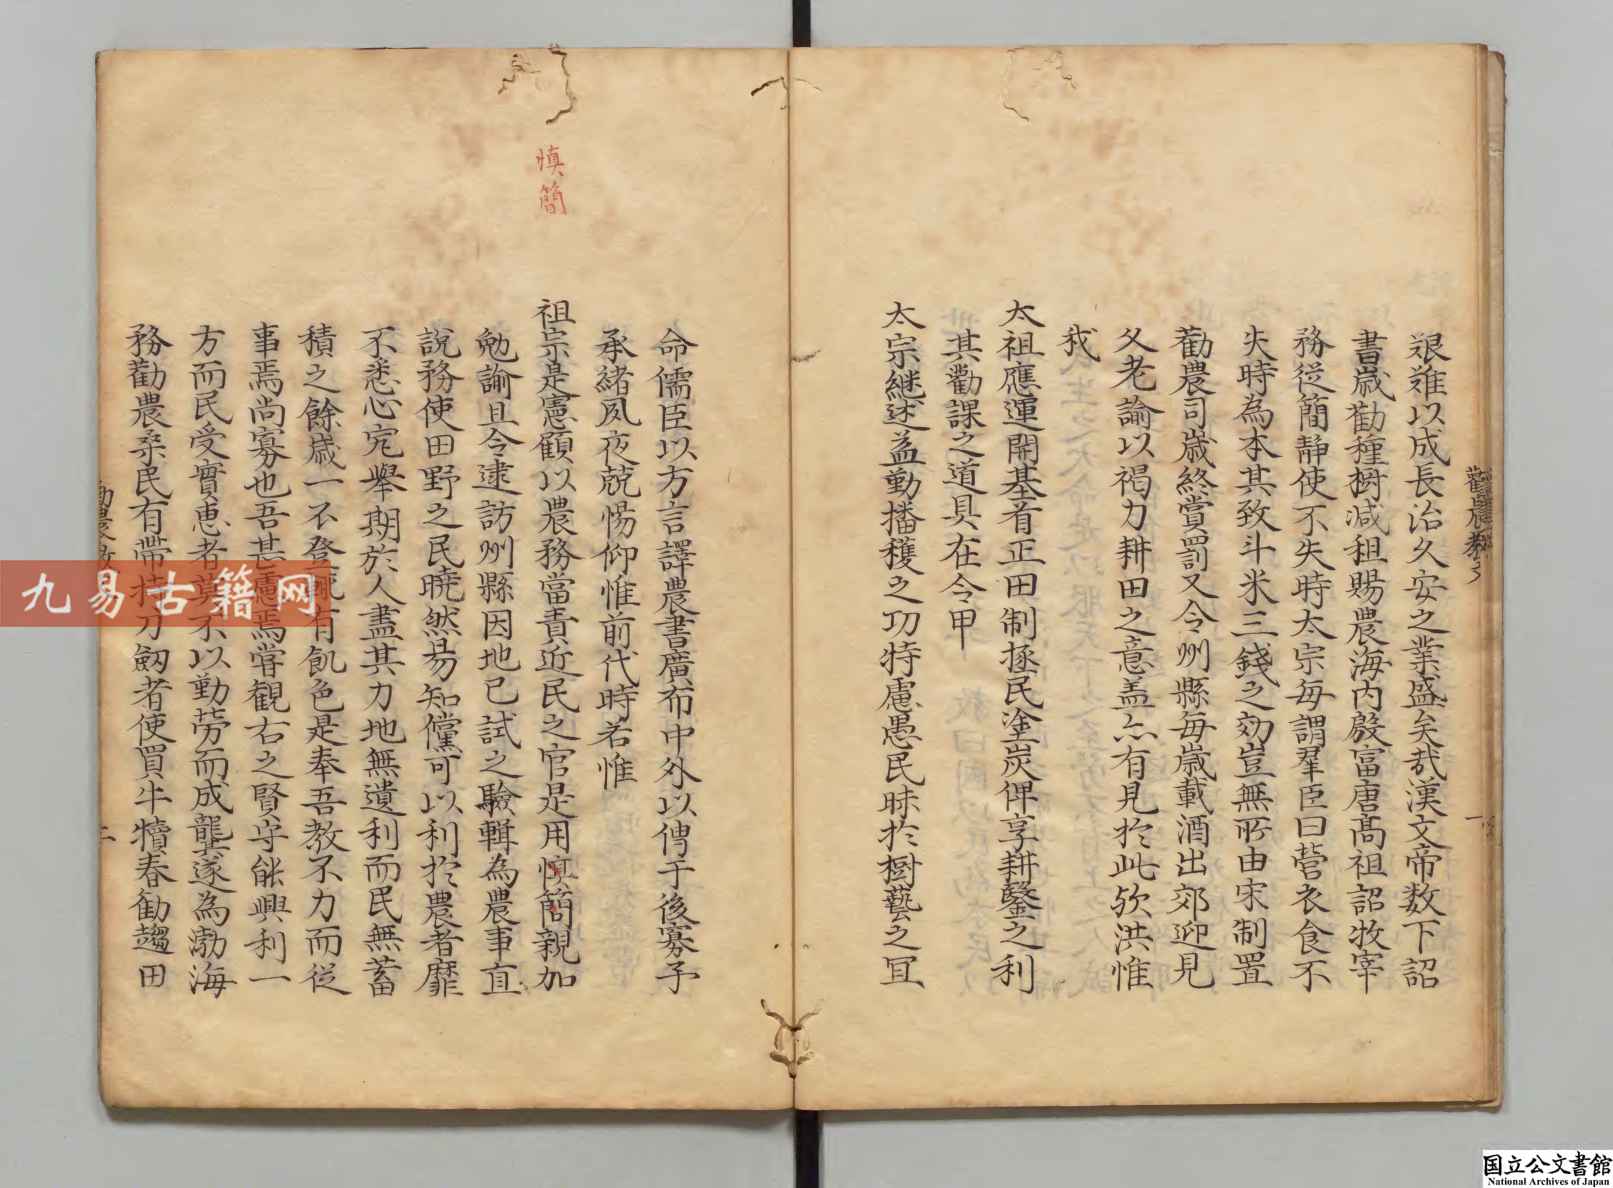 艱難以成長治久安之業盛矣哉漢文帝数下詔
書歲勸種樹減租賜農海内殷富唐髙祖詔牧宰
務從簡静使不失時太宗每謂羣臣曰營衣食不
失時為本其致斗米三錢之効豈無所由宋制置
勸農司歲終賞罰又令州縣每歲載酒出郊迎見
父老諭以褐力耕田之意盖亦有見於此欤洪惟
我
太祖應運開基首正田制拯民塗炭俾享耕鑿之利
其勸課之道具在令甲
太宗継述益勤播穫之功特慮愚民昧於樹藝之冝
命儒臣以方言譯農書廣布中外以傳于後寡予
承緒夙夜兢惕仰惟前代時若惟
祖宗是憲顧以農務當責近民之官是用慎簡親加
勉諭且令逮訪州縣因地已試之驗輯為農事直
說務使田野之民曉然易知儻可以利於農者靡
不悉心究舉期於人盡其力地無遺利而民無蓄
積之餘歲一不登輒有飢色是奉吾教不力而從
事焉尚寡也吾甚慮焉嘗観古之賢守能興利一
方而民受實恵者莫不以勤勞而成龔遂為渤海
務勸農桑民有帶持刀劔者使買牛犢春勧趨田
慎簡
勸農教
二
九易古籍网
国立公文書館
National Archives of Japan